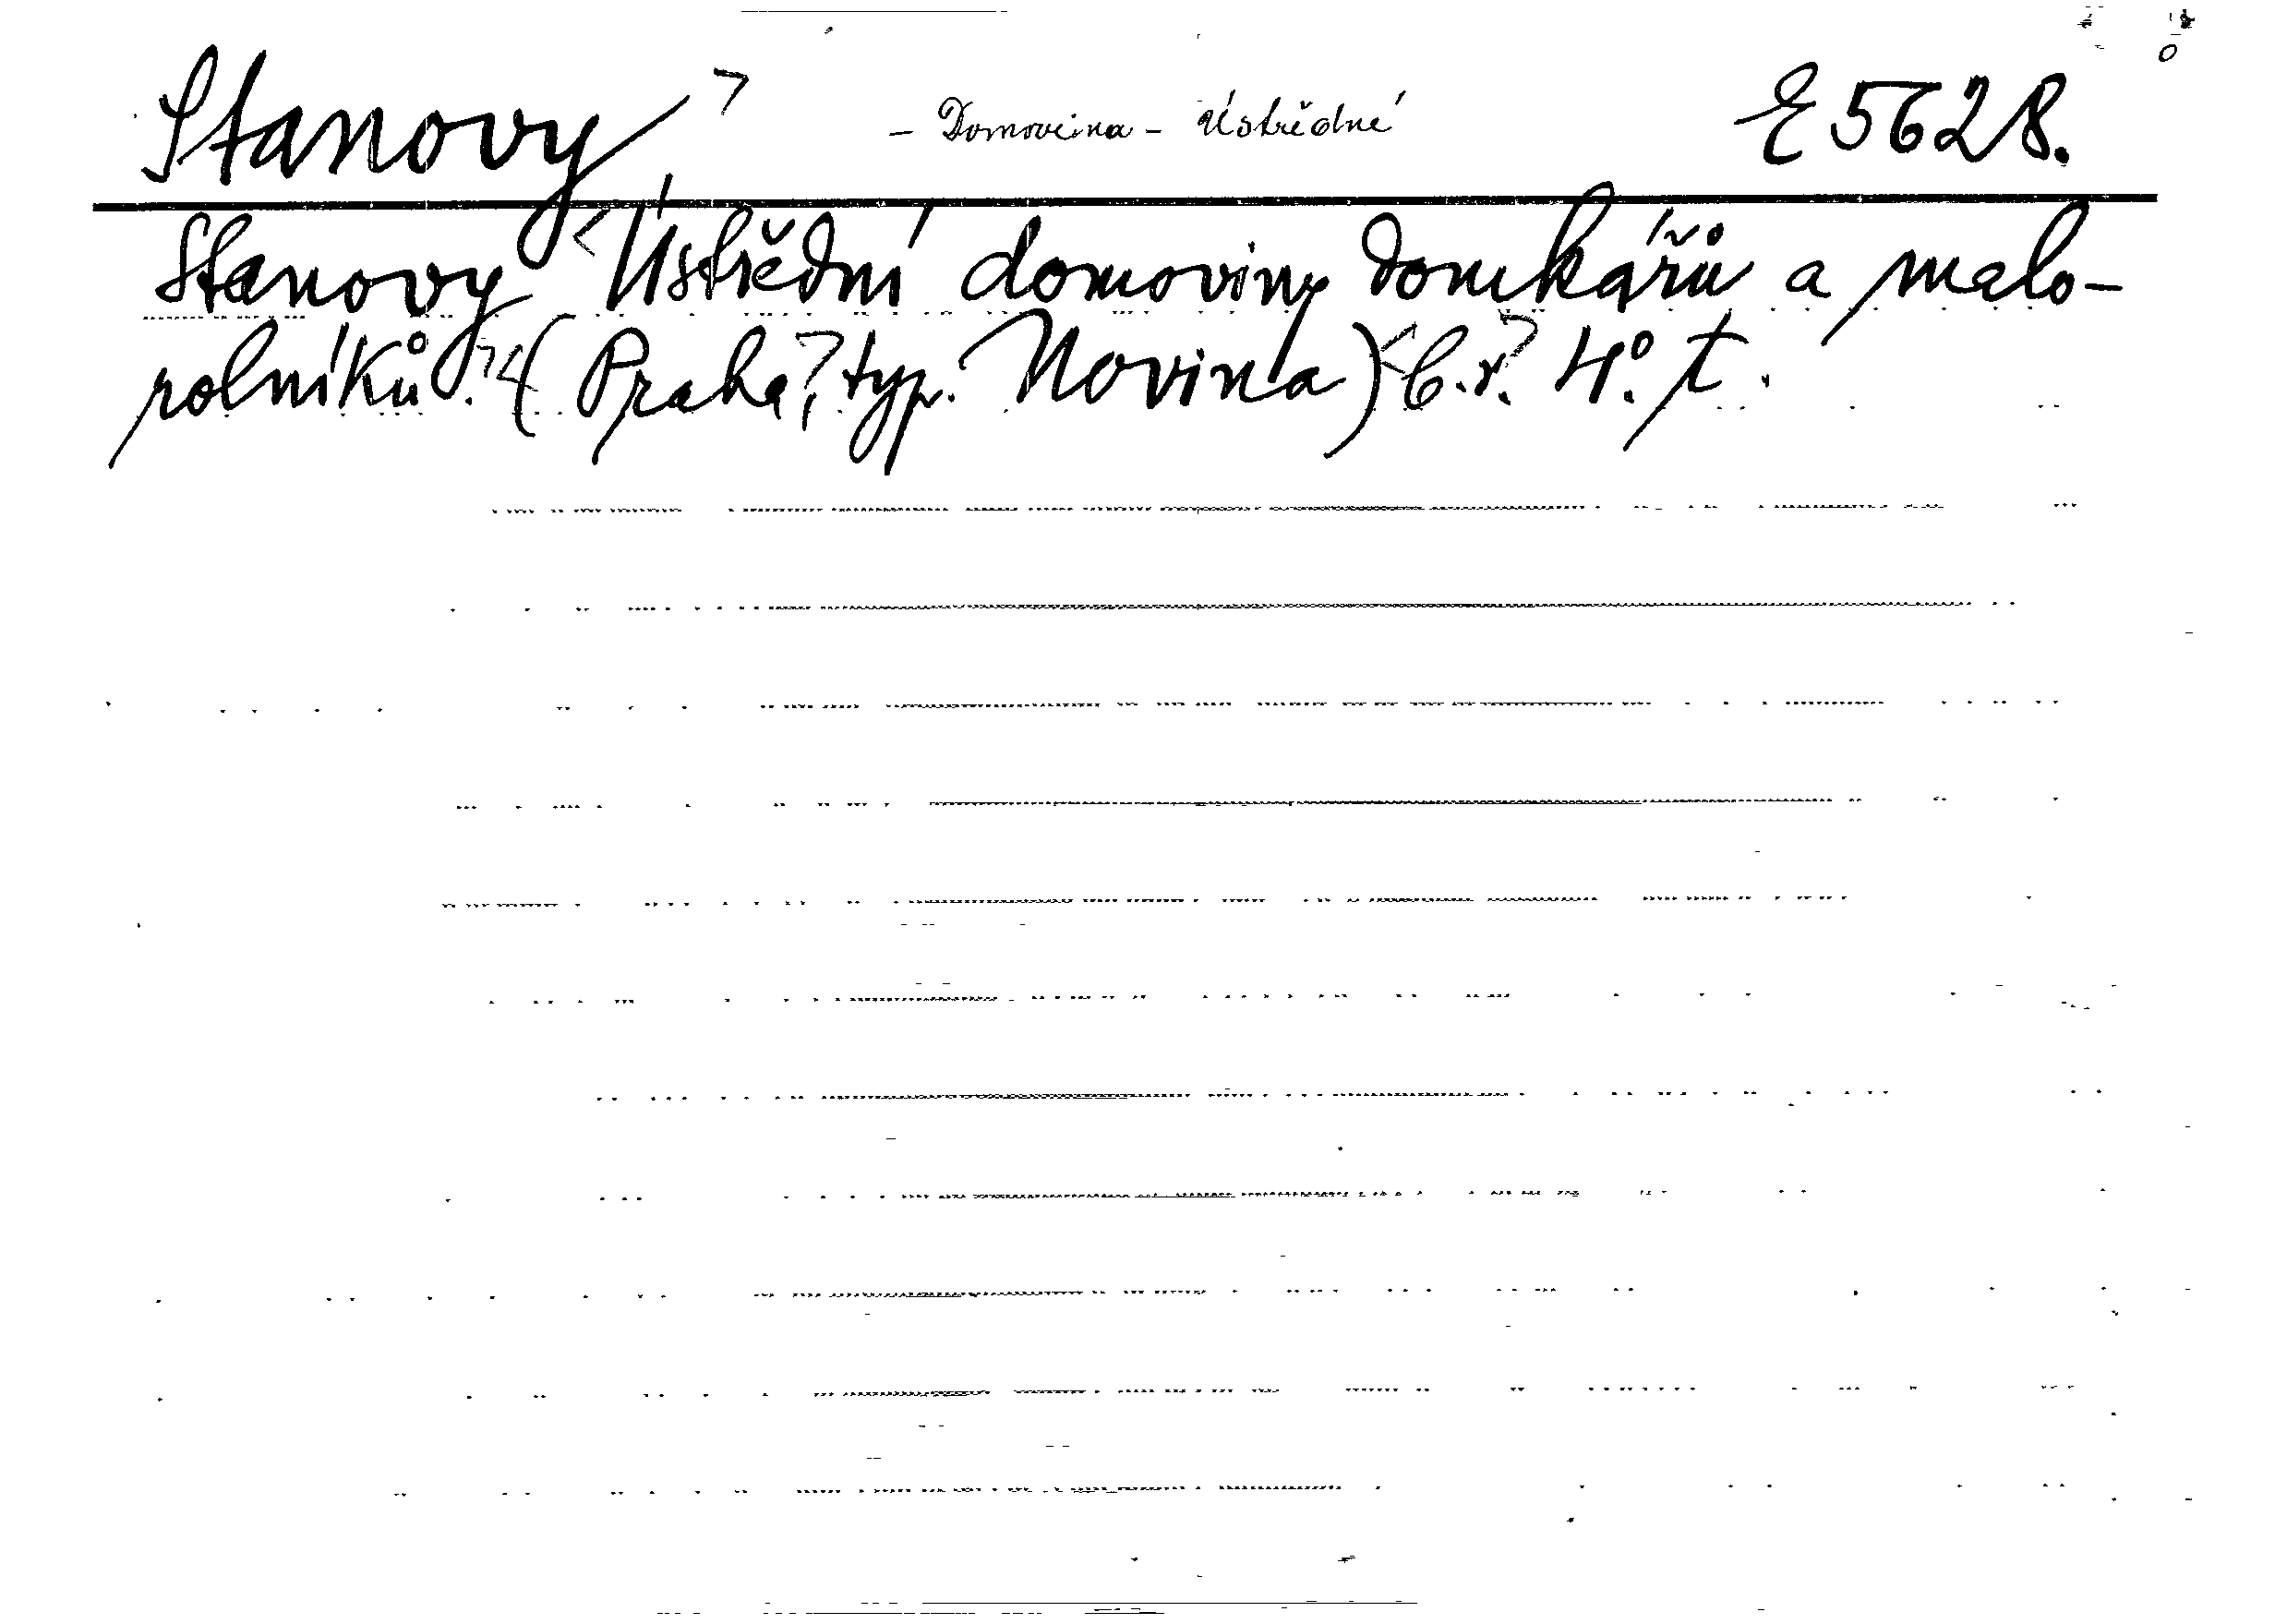 Stanovy - Domovina - Ústřední E 5628.
Stanovy Ústřední domoviny domkářů a malo-
rolníků. (Praha, typ. Novina) b.r. 4°. t.